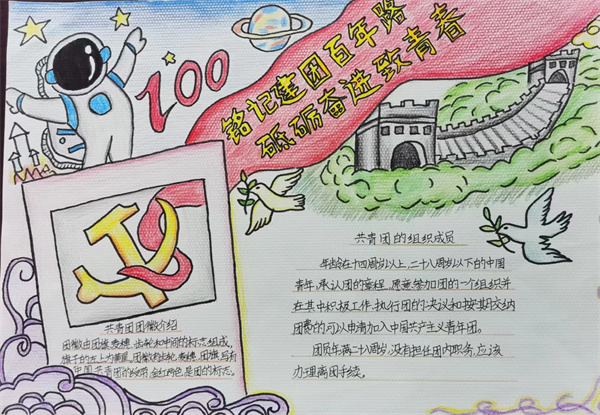 100
铭记建团百年路
砥砺奋进致青春
共青团的组织成员
年龄在十四周岁以上,二十八周岁以下的中国
青年,承认团的章程,愿意参加团的一个组织并
在其中积极工作、执行团的决议和按期交纳
团费的可以申请加入中国共产主义青年团。
团员年满二十八周岁,没有担任团内职务,应该
办理离团手续。
共青团团徽介绍
团徽由团旗、麦穗、齿轮和中间的标志组成,
中国共青团的绶带,金红两色,是团的标志。